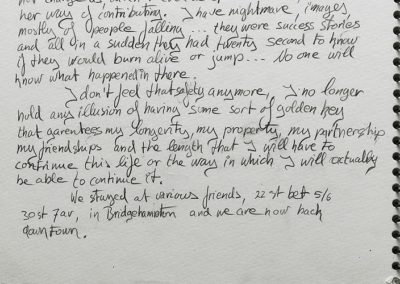 her way of contributing. I have nightmare, images
mostly of people falling... they were success stories
and all on a sudden they had twenty second to know
if they would burn alive or jump... No one will
know what happened in there.
I don't feel that safety anymore, I no longer
hold any illusion of having some sort of golden key
that garentees my longevity, my property, my partnership
my friendships and the length that I will have to
continue this life or the way in which I will actually
be able to continue it.
We stayed at various friends, 22 st bet 5/6
30 st 7 av, in Bridgehampton and we are now back
downtown.